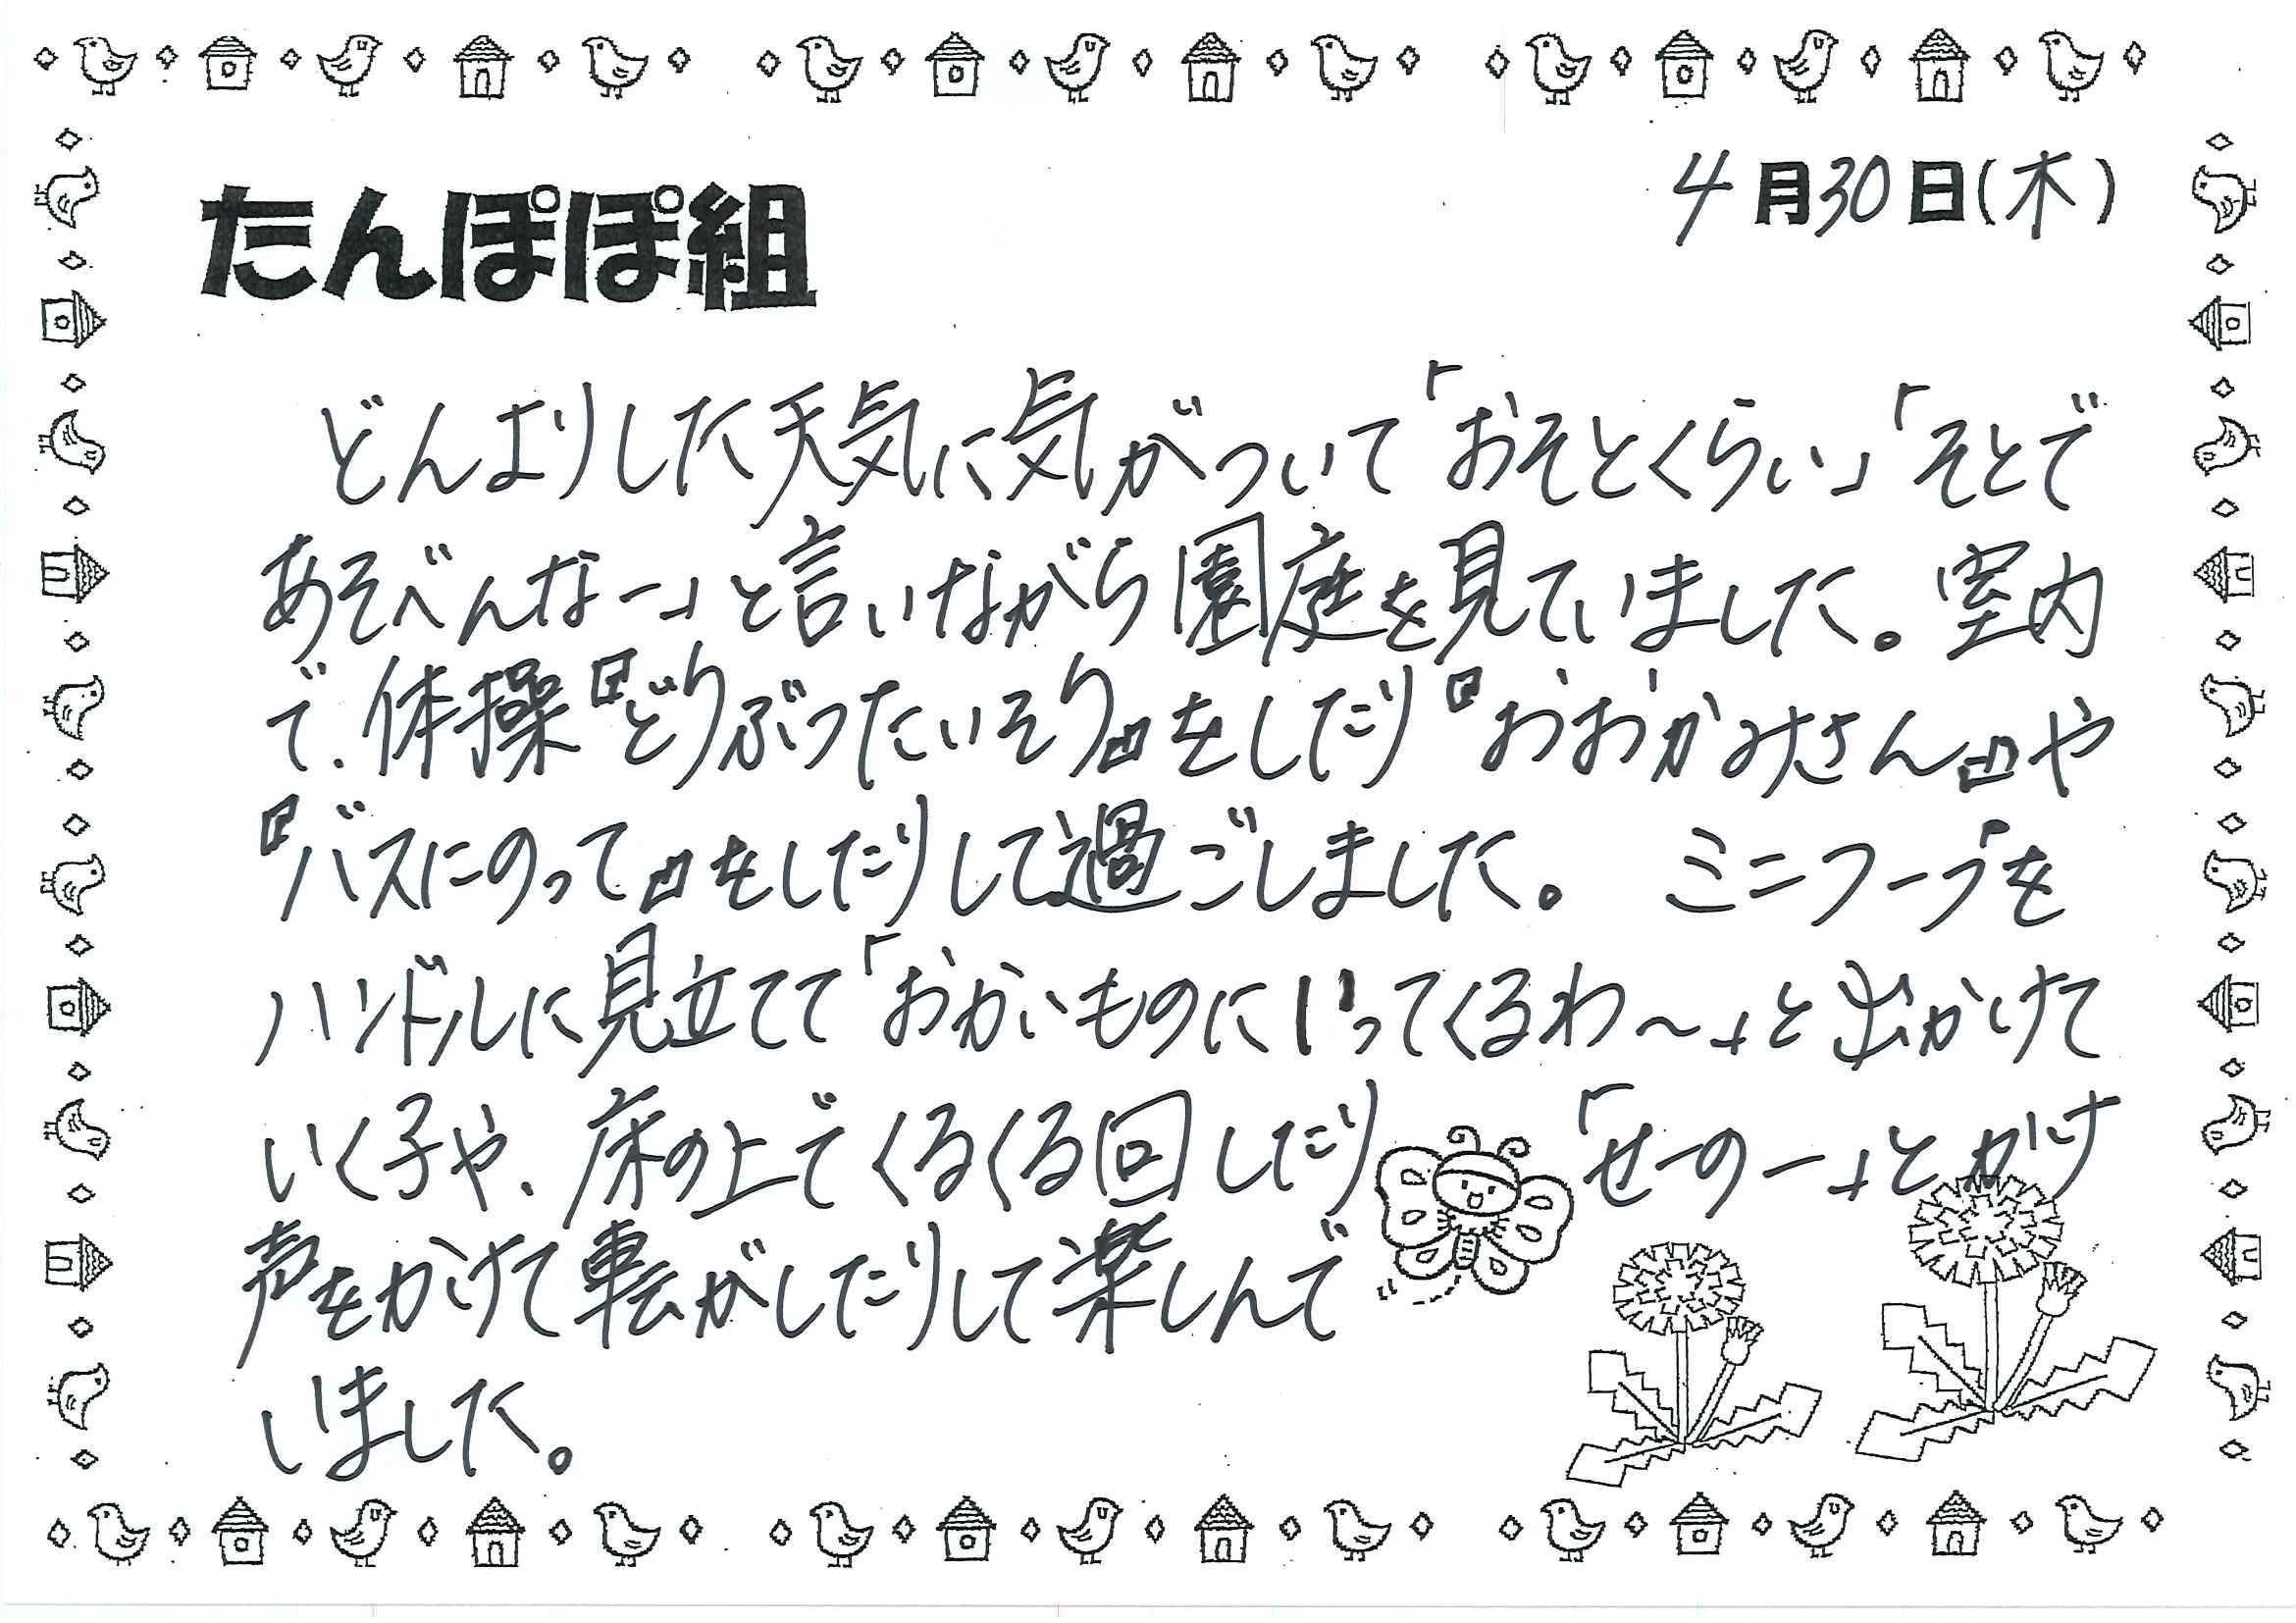 4月30日(木)
たんぽぽ組
どんよりした天気に気がついて「おそとくらい」「そとで
あそべんなー」と言いながら園庭を見ていました。室内
で、体操『どうぶつたいそう』をしたり『おおかみさん』や
『バスにのって』をしたりして過ごしました。 ミニフープを
ハンドルに見立てて「おかいものにいってくるわ〜」と出かけて
いく子や、床の上でくるくる回したり 「せーのー」とかけ
声をかけて転がしたりして楽しんで
いました。